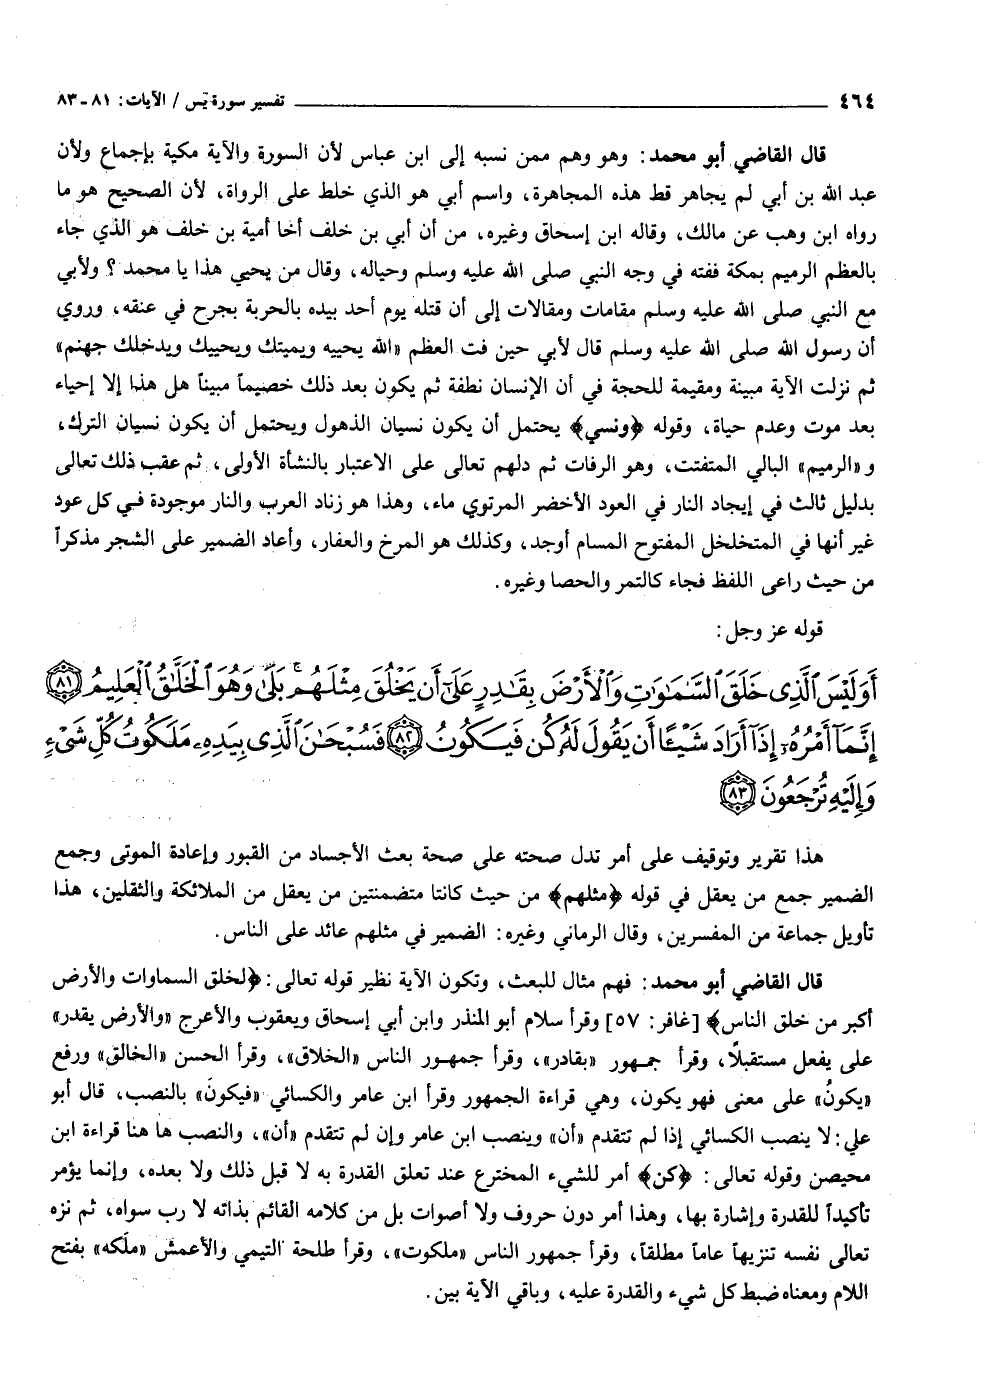 ٤٦٤ تفسير سورة يٓس / الآيات: ٨١ - ٨٣
قال القاضي أبو محمد: وهو وهم ممن نسبه إلى ابن عباس لأن السورة والآية مكية بإجماع ولأن
عبد الله بن أبي لم يجاهر قط هذه المجاهرة، واسم أبي هو الذي خلط على الرواة، لأن الصحيح هو ما
رواه ابن وهب عن مالك، وقاله ابن إسحاق وغيره، من أن أبي بن خلف أخا أمية بن خلف هو الذي جاء
بالعظم الرميم بمكة ففته في وجه النبي صلى الله عليه وسلم وحياله، وقال من يحيي هذا يا محمد؟ ولأبي
مع النبي صلى الله عليه وسلم مقامات ومقالات إلى أن قتله يوم أحد بيده بالحربة بجرح في عنقه، وروي
أن رسول الله صلى الله عليه وسلم قال لأبي حين فت العظم «الله يحييه ويميتك ويحييك ويدخلك جهنم»
ثم نزلت الآية مبينة ومقيمة للحجة في أن الإنسان نطفة ثم يكون بعد ذلك خصيماً مبيناً هل هذا إلا إحياء
بعد موت وعدم حياة، وقوله ﴿ونسي﴾ يحتمل أن يكون نسيان الذهول ويحتمل أن يكون نسيان الترك،
و«الرميم» البالي المتفتت، وهو الرفات ثم دلهم تعالى على الاعتبار بالنشأة الأولى، ثم عقب ذلك تعالى
بدليل ثالث في إيجاد النار في العود الأخضر المرتوي ماء، وهذا هو زناد العرب والنار موجودة في كل عود
غير أنها في المتخلخل المفتوح المسام أوجد، وكذلك هو المرخ والعفار، وأعاد الضمير على الشجر مذكراً
من حيث راعى اللفظ فجاء كالتمر والحصا وغيره.
قوله عز وجل:
أَوَلَيْسَ ٱلَّذِى خَلَقَ ٱلسَّمَٰوَٰتِ وَٱلْأَرْضَ بِقَٰدِرٍ عَلَىٰٓ أَن يَخْلُقَ مِثْلَهُم ۚ بَلَىٰ وَهُوَ ٱلْخَلَّٰقُ ٱلْعَلِيمُ ﴿٨١﴾
إِنَّمَآ أَمْرُهُۥٓ إِذَآ أَرَادَ شَيْـًٔا أَن يَقُولَ لَهُۥ كُن فَيَكُونُ ﴿٨٢﴾ فَسُبْحَٰنَ ٱلَّذِى بِيَدِهِۦ مَلَكُوتُ كُلِّ شَىْءٍ
وَإِلَيْهِ تُرْجَعُونَ ﴿٨٣﴾
هذا تقرير وتوقيف على أمر تدل صحته على صحة بعث الأجساد من القبور وإعادة الموتى وجمع
الضمير جمع من يعقل في قوله ﴿مثلهم﴾ من حيث كانتا متضمنتين من يعقل من الملائكة والثقلين، هذا
تأويل جماعة من المفسرين، وقال الرماني وغيره: الضمير في مثلهم عائد على الناس.
قال القاضي أبو محمد: فهم مثال للبعث، وتكون الآية نظير قوله تعالى: ﴿لخلق السماوات والأرض
أكبر من خلق الناس﴾ [غافر: ٥٧] وقرأ سلام أبو المنذر وابن أبي إسحاق ويعقوب والأعرج «والأرض يقدر»
على يفعل مستقبلًا، وقرأ جمهور «بقادر»، وقرأ جمهور الناس «الخلاق»، وقرأ الحسن «الخالق» ورفع
«يكونُ» على معنى فهو يكون، وهي قراءة الجمهور وقرأ ابن عامر والكسائي «فيكونَ» بالنصب، قال أبو
علي: لا ينصب الكسائي إذا لم تتقدم «أن» وينصب ابن عامر وإن لم تتقدم «أن»، والنصب ها هنا قراءة ابن
محيصن وقوله تعالى: ﴿كن﴾ أمر للشيء المخترع عند تعلق القدرة به لا قبل ذلك ولا بعده، وإنما يؤمر
تأكيداً للقدرة وإشارة بها، وهذا أمر دون حروف ولا أصوات بل من كلامه القائم بذاته لا رب سواه، ثم نزه
تعالى نفسه تنزيهاً عاماً مطلقاً، وقرأ جمهور الناس «ملكوت»، وقرأ طلحة التيمي والأعمش «ملَكه» بفتح
اللام ومعناه ضبط كل شيء والقدرة عليه، وباقي الآية بين.